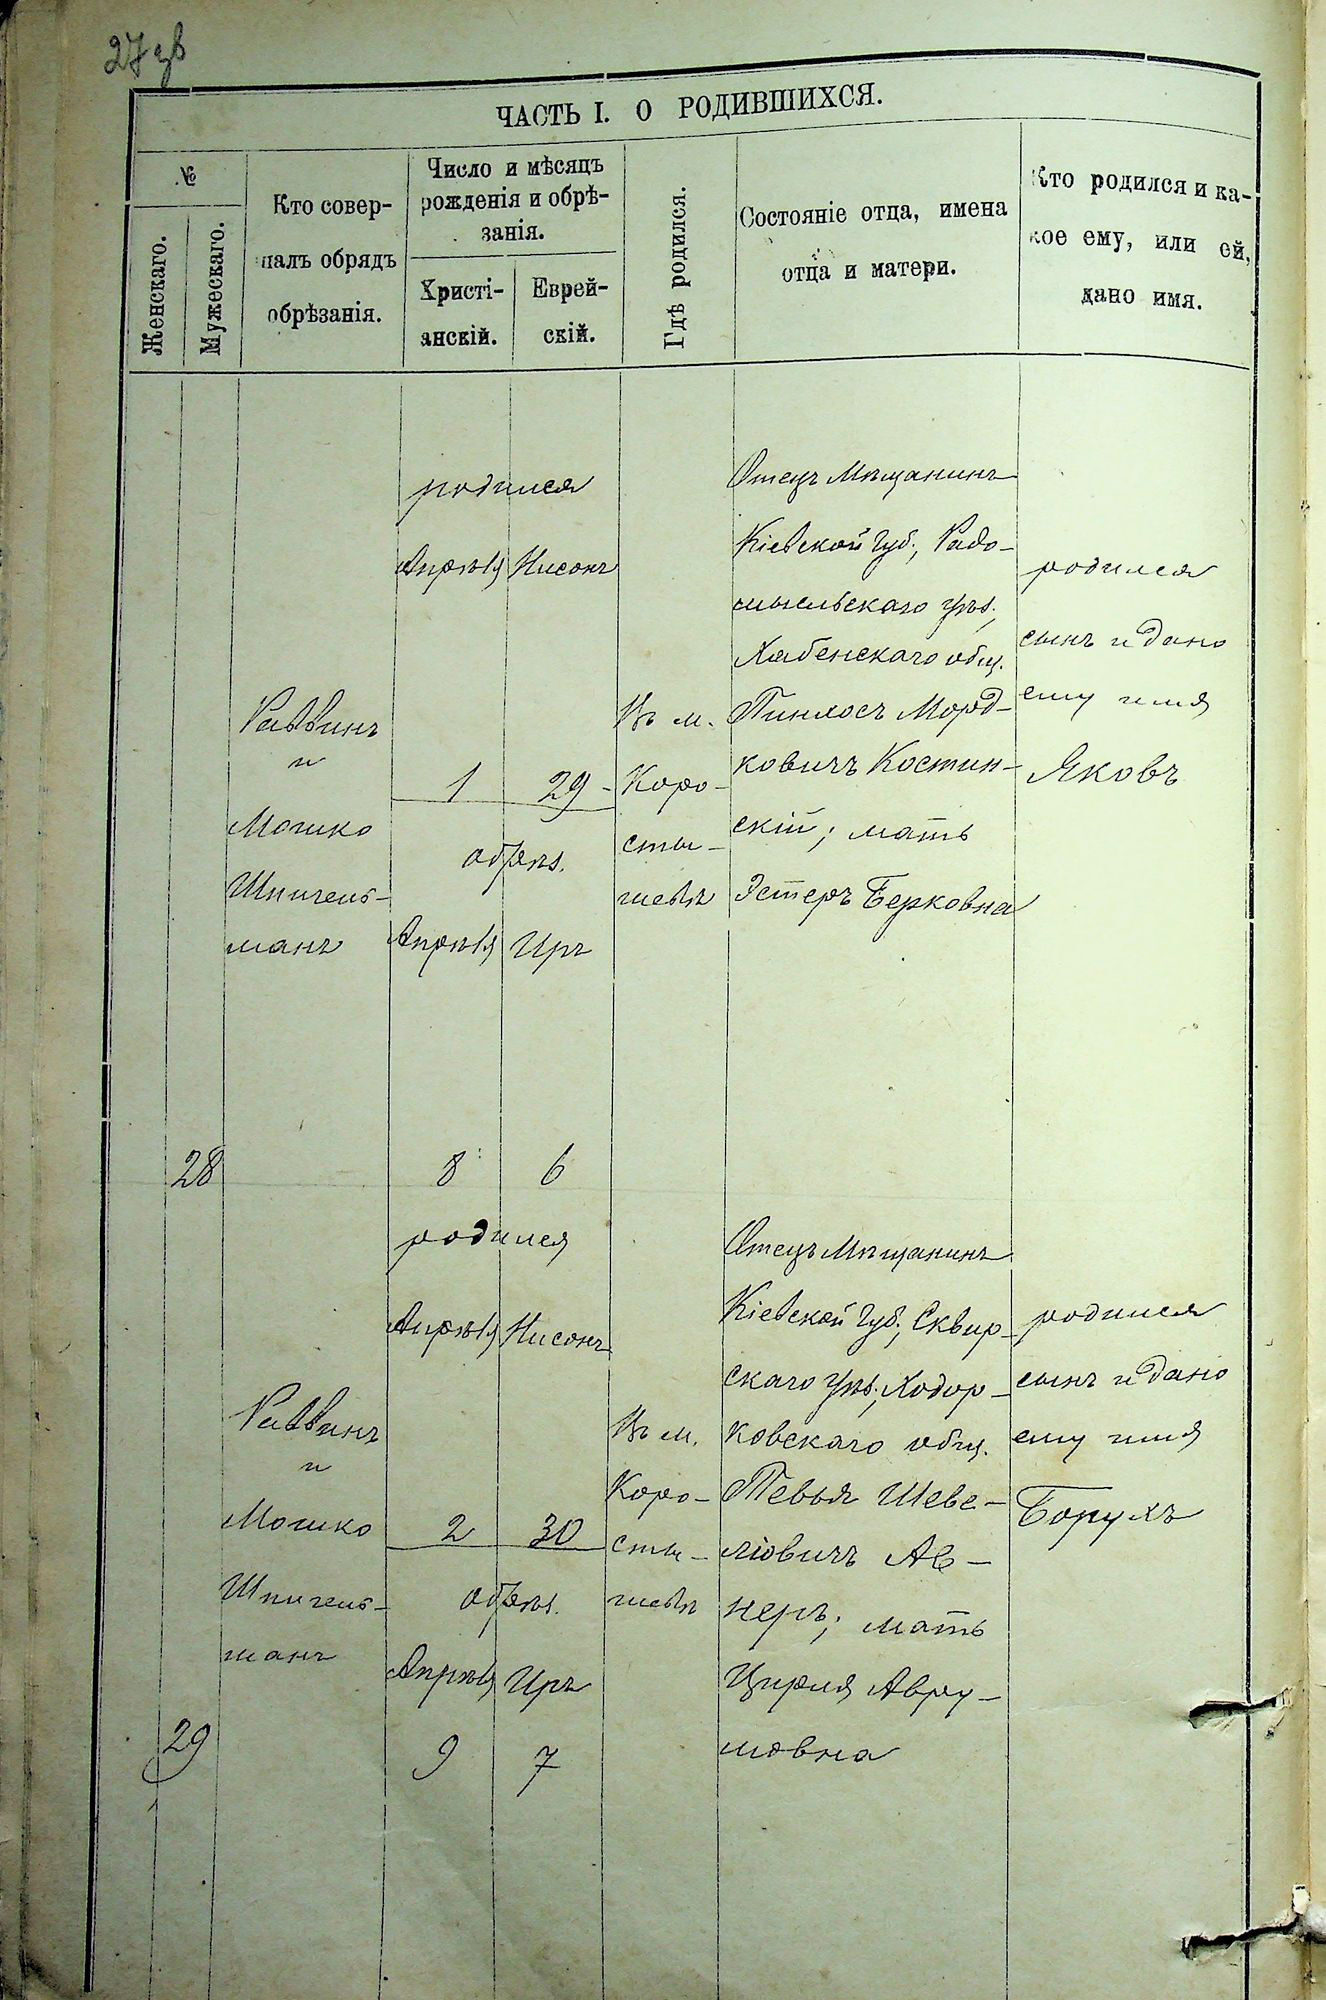 27 зв
ЧАСТЬ I. О РОДИВШИХСЯ.
№
Женскаго.
Мужескаго.
Кто совер-
шалъ обрядъ
обрѣзанія.
Число и мѣсяцъ
рожденія и обрѣ-
занія.
Христі-
анскій.
Еврей-
скій.
Гдѣ родился.
Состояніе отца, имена
отца и матери.
Кто родился и ка-
кое ему, или ей,
дано имя.
28
Раввинъ
и
Мошко
Шпигель-
манъ
родился
Апрѣля Нисонъ
1 29
обрѣз.
Апрѣля Иръ
8 6
Въ м.
Коро-
сты-
шевѣ
Отецъ Мѣщанинъ
Кіевской Губ., Радо-
мысльскаго уѣз.,
Хабенскаго общ.
Пинхосъ Морд-
ковичъ Костин-
скій; мать
Эстеръ Берковна
родился
сынъ и дано
ему имя
Яковъ
29
Раввинъ
и
Мошко
Шпигель-
манъ
родился
Апрѣля Нисонъ
2 30
обрѣз.
Апрѣля Иръ
9 7
Въ м.
Коро-
сты-
шевѣ
Отецъ Мѣщанинъ
Кіевской Губ., Сквир-
скаго уѣз., Ходор-
ковскаго общ.
Тевья Шеве-
ліовичъ Ав-
неръ; мать
Цирля Авру-
мовна
родился
сынъ и дано
ему имя
Борухъ